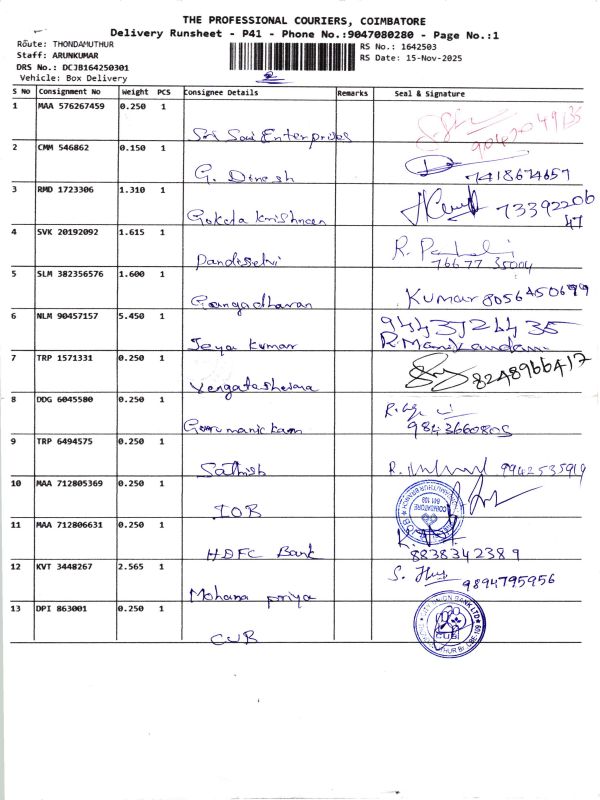 THE PROFESSIONAL COURIERS, COIMBATORE
Delivery Runsheet - P41 - Phone No.:9047080280 - Page No.:1
Route: THONDAMUTHUR
Staff: ARUNKUMAR
DRS No.: DCJB164250301
Vehicle: Box Delivery
RS No.: 1642503
RS Date: 15-Nov-2025
S No Consignment No Weight PCS Consignee Details Remarks Seal & Signature
1 MAA 576267459 0.250 1 Sri Sai Enterprises
2 CMM 546862 0.150 1 G. Dinesh 7418674657
3 RMD 1723306 1.310 1 Gokula Krishnan 7339220647
4 SVK 20192092 1.615 1 Pandiselvi 76677 35004
5 SLM 382356576 1.600 1 Gangadharan Kumar 8056450699
6 NLM 90457157 5.450 1 Jeya Kumar 9443526435
R. Manikandan
7 TRP 1571331 0.250 1 Vengateshwara 8248966417
8 DDG 6045580 0.250 1 Gurumanickam 9843660805
9 TRP 6494575 0.250 1 Sathish 9942535919
10 MAA 712805369 0.250 1 IOB
11 MAA 712806631 0.250 1 HDFC Bank 8838342389
12 KVT 3448267 2.565 1 Mohana priya 9894795956
13 DPI 863001 0.250 1 CUB CUB